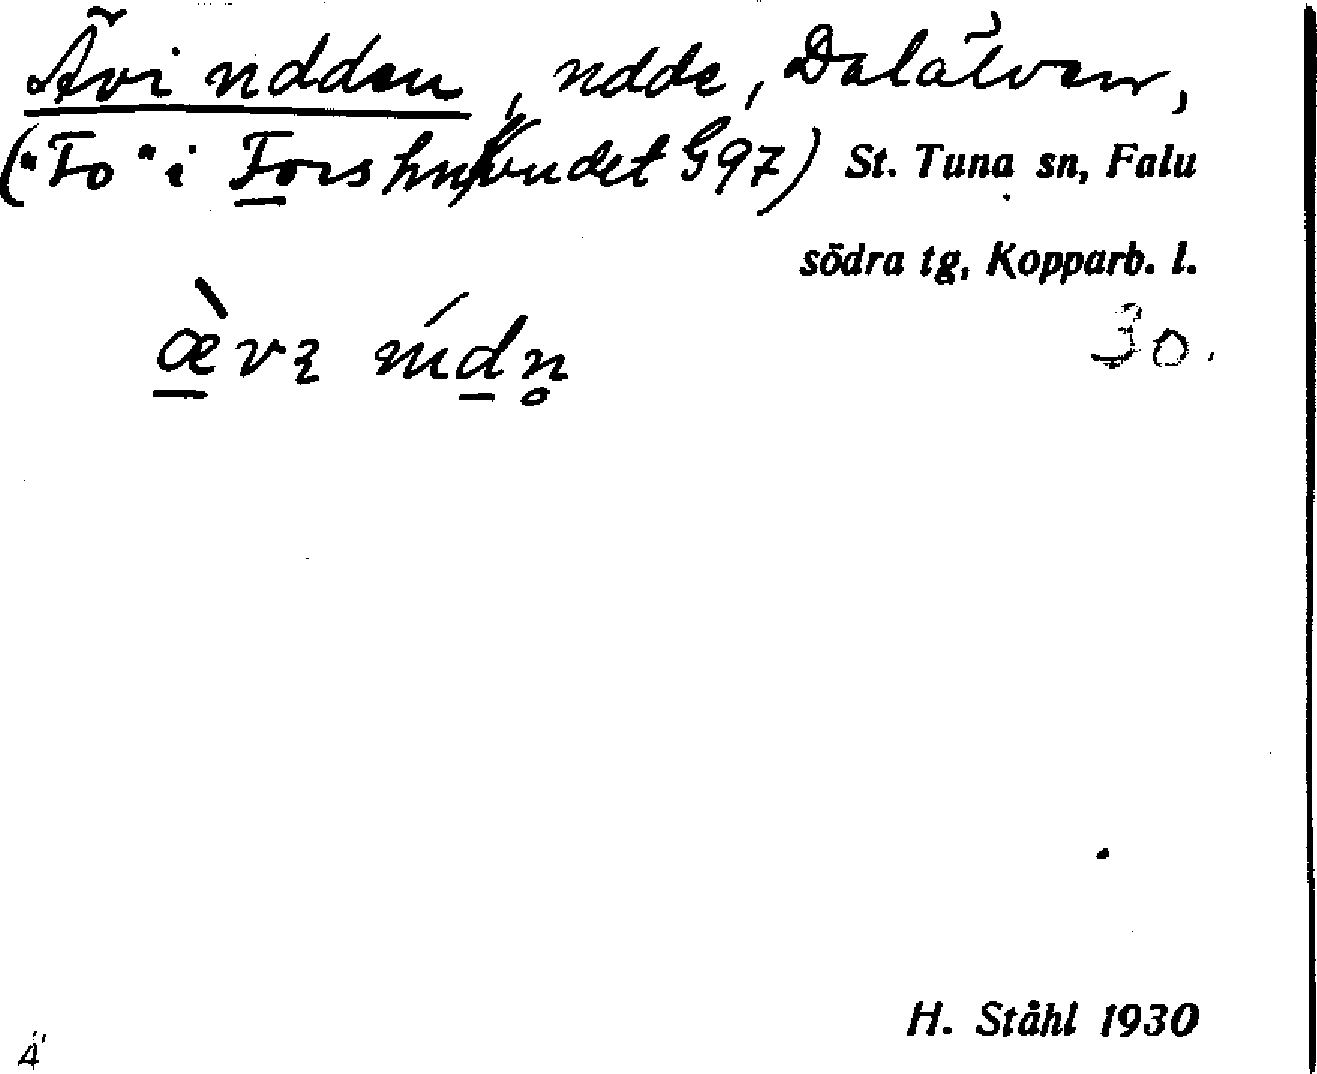 Ävi udden, udde, Dalälven,
("Fo" i Forshuvudet G97) St. Tuna sn, Falu
södra tg, Kopparb. l.
30.
H. Ståhl 1930
Ä